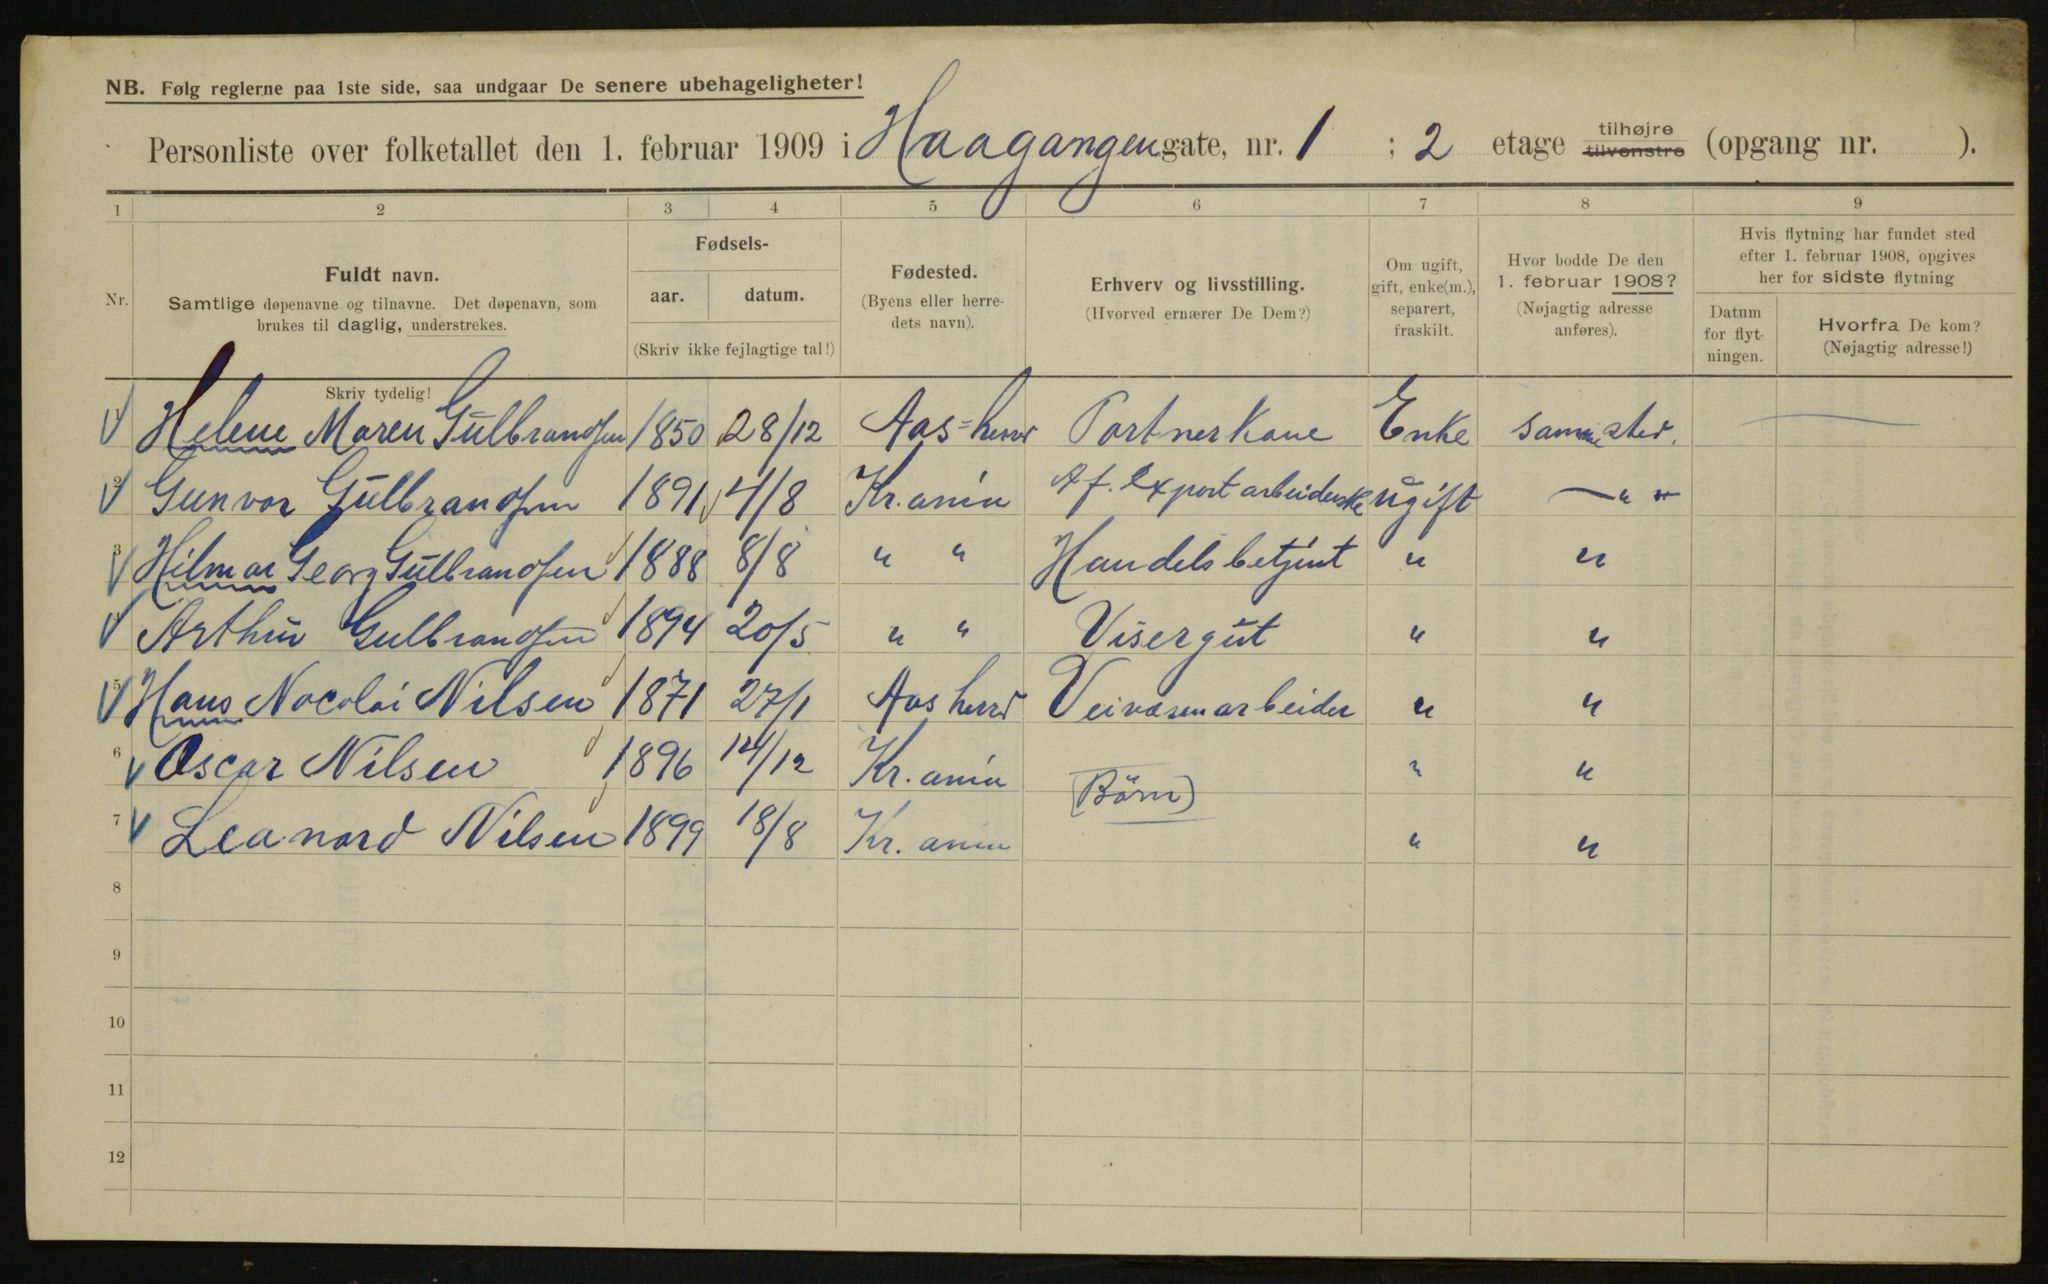 NB. Følg reglerne paa 1ste side, saa undgaar De senere ubehageligheter!
Personliste over folketallet den 1. februar 1909 i Haagangengate, nr. 1 ; 2 etage tilhøjre tilvenstre (opgang nr. ).
1 2 3 4 5 6 7 8 9
Nr.
Fuldt navn.
Samtlige døpenavne og tilnavne. Det døpenavn, som
brukes til daglig, understrekes.
Skriv tydelig!
Fødsels-
aar. datum.
(Skriv ikke fejlagtige tal!)
Fødested.
(Byens eller herre-
dets navn).
Erhverv og livsstilling.
(Hvorved ernærer De Dem?)
Om ugift,
gift, enke(m.),
separert,
fraskilt.
Hvor bodde De den
1. februar 1908?
(Nøjagtig adresse
anføres).
Hvis flytning har fundet sted
efter 1. februar 1908, opgives
her for sidste flytning
Datum
for flyt-
ningen.
Hvorfra De kom?
(Nøjagtig adresse!)
1 Helene Maren Gulbrandsen 1850 28/12 Aas=herred Portnerkone Enke sammested.
2 Gunvor Gulbrandsen 1891 4/8 Kr.ania Af. Export arbeiderske ugift — " "
3 Hilmar Georg Gulbrandsen 1888 8/8 " " Handelsbetjent " "
4 Arthur Gulbrandsen 1894 20/5 " " Visergut " "
5 Hans Nocolai Nilsen 1871 27/1 Aas herred Veivæsenarbeider " "
6 Oscar Nilsen 1896 14/12 Kr.ania (Börn) " "
7 Leanard Nilsen 1899 18/8 Kr.ania " "
8
9
10
11
12